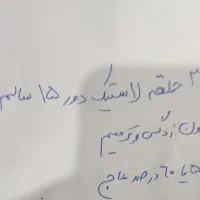 ۳ حلقه لاستیک دور ۱۵ سالم
ون زدگی و ترمیم
۵ یا ۶۰ درصد عاج